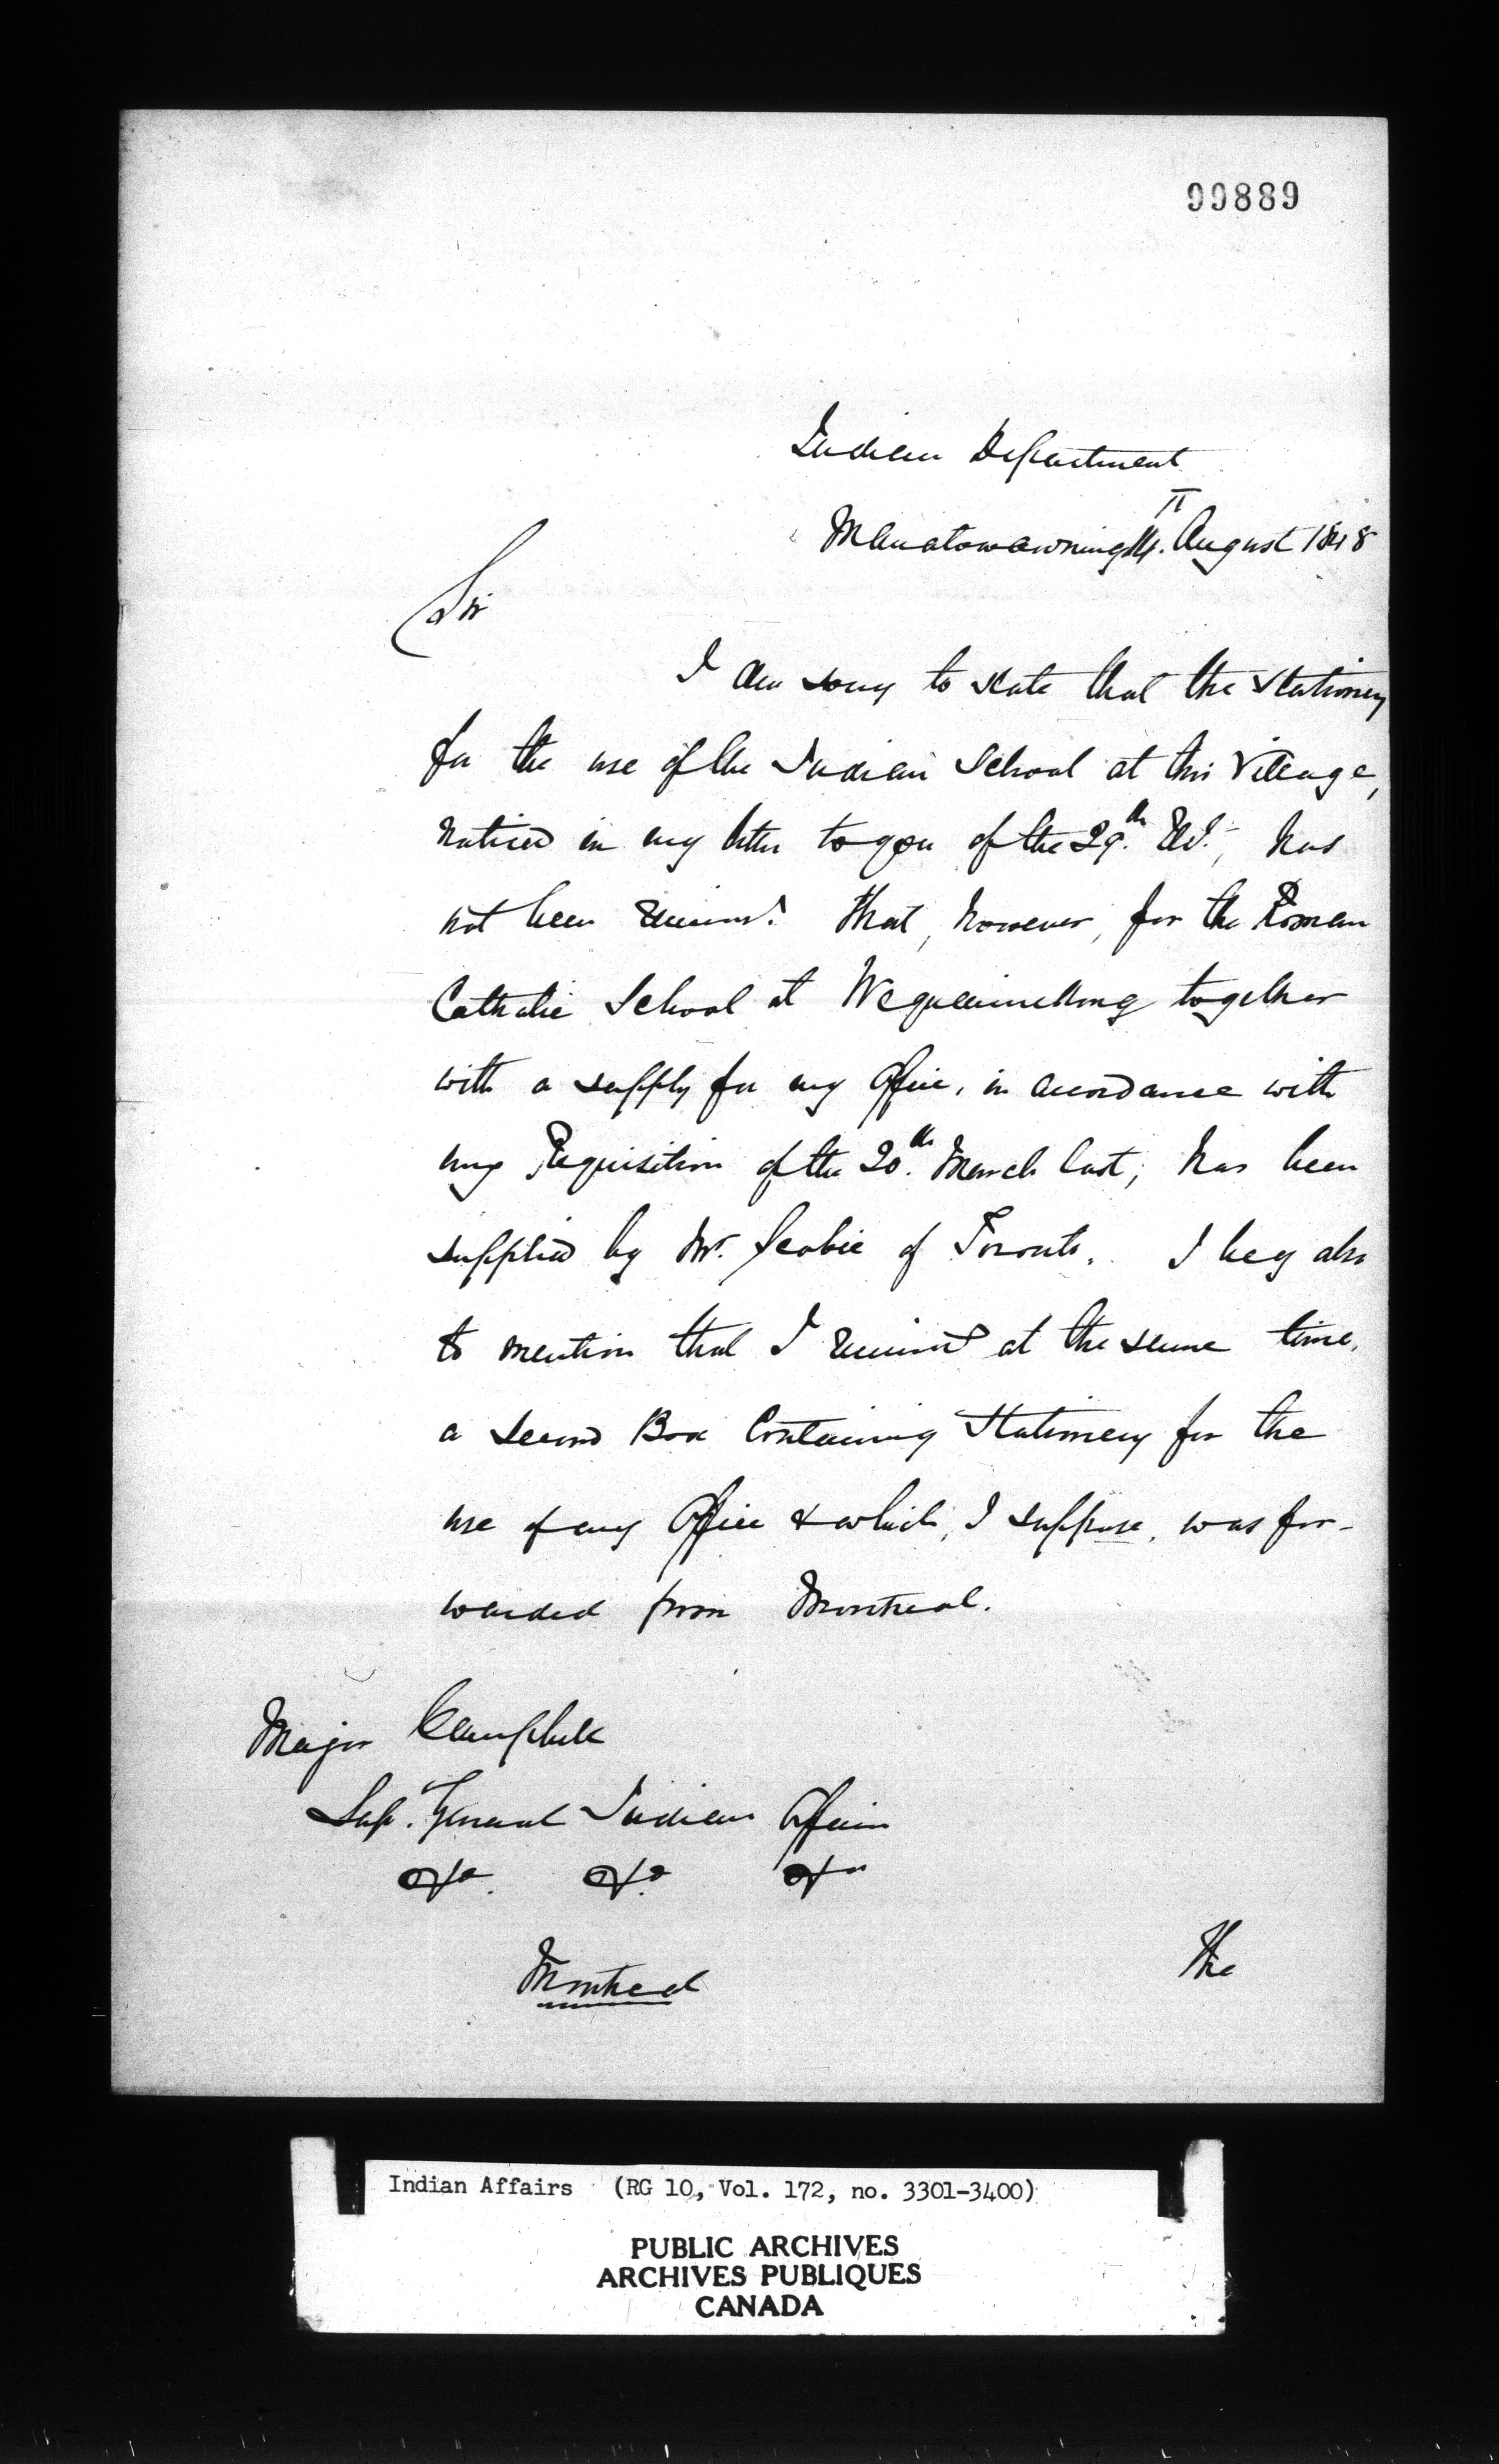 99889
Indian Department
Manatowawning 14. August 1848
Sir
I am sorry to state that the Stationery
for the use of the Indian School at this Village,
noticed in my letter to you of the 29.th Ult., has
not been received. That, however, for the Roman
Catholic School at together
with a supply for my Office, in accordance with
my Requisition of the 20.th March last, has been
supplied by Mr. Scobie of Toronto. I beg also
to mention that I received at the same time,
a second Box Containing Stationery for the
use of my Office & which, I suppose, was for-
warded from Montreal.
Major Campbell
Sup. General Indian Affairs
&c. &c. &c
Montreal
The
Indian Affairs (RG 10, Vol. 172, no. 3301-3400)
PUBLIC ARCHIVES
ARCHIVES PUBLIQUES
CANADA